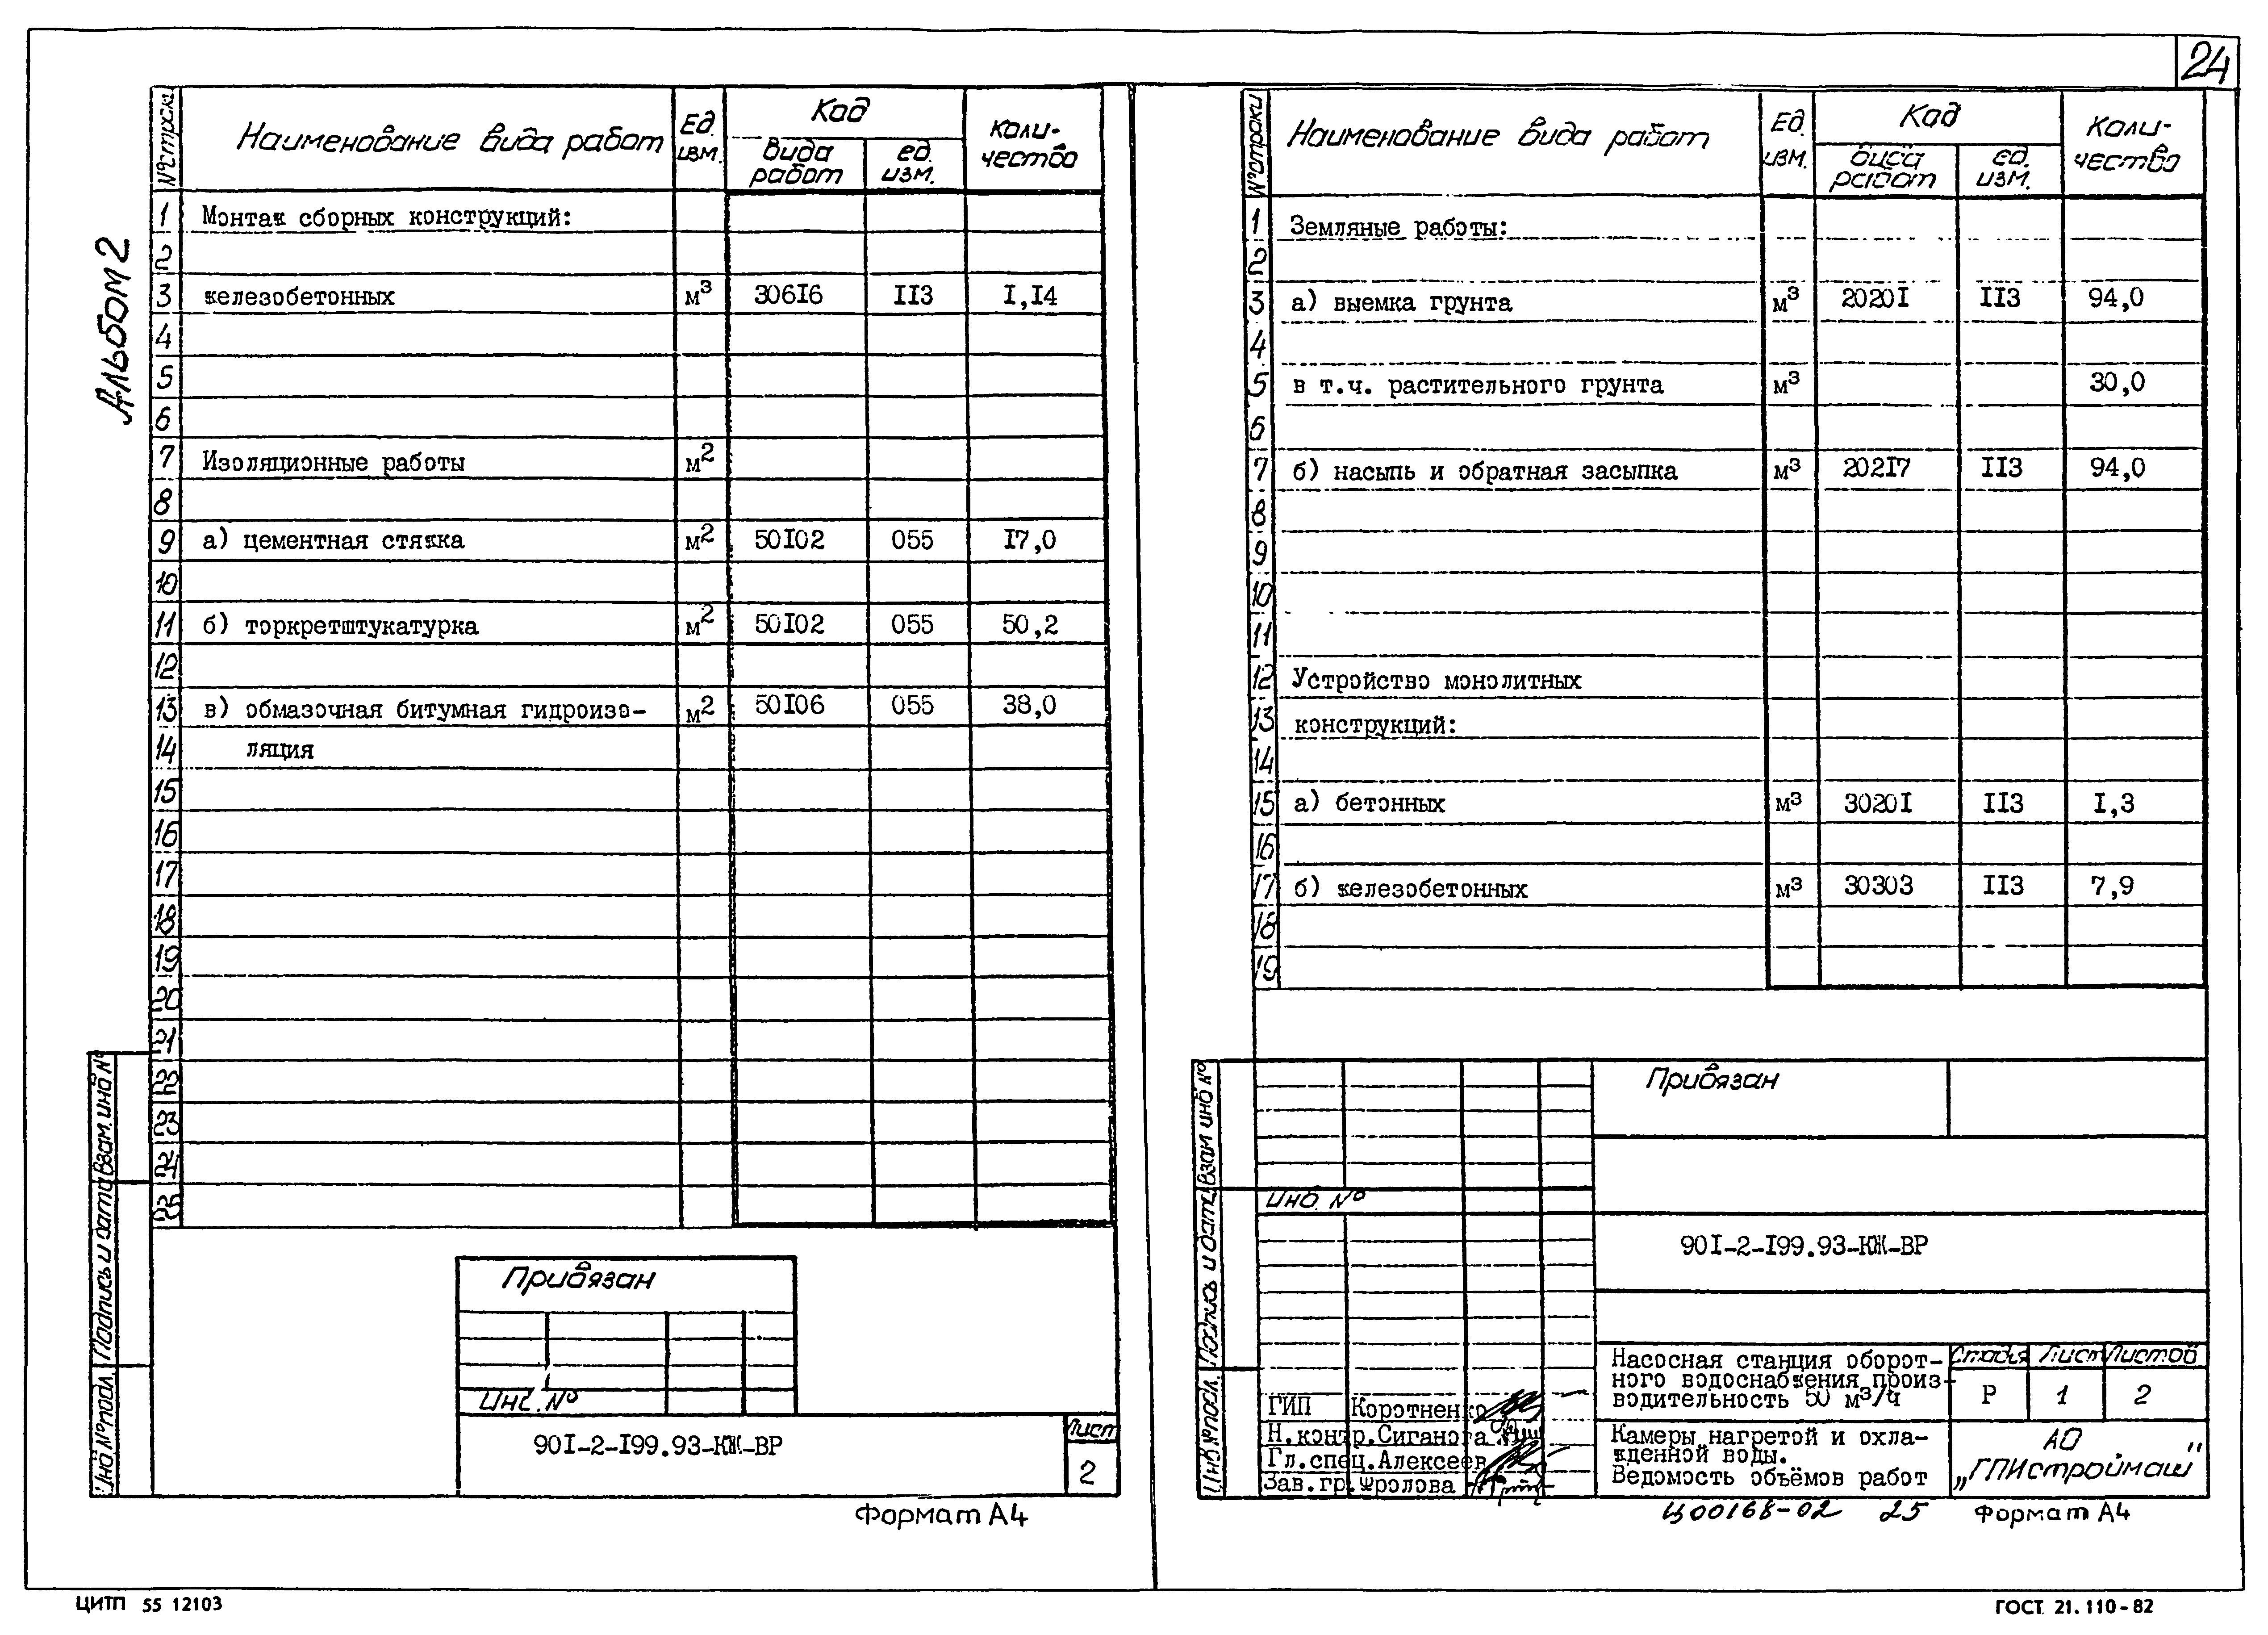 24
Альбом 2
№ строки Наименование вида работ Ед. изм. Код вида работ ед. изм. Количество
1 Монтаж сборных конструкций:
2
3 железобетонных м³ 30616 113 1,14
4
5
6
7 Изоляционные работы м²
8
9 а) цементная стяжка м² 50102 055 17,0
10
11 б) торкретштукатурка м² 50102 055 50,2
12
13 в) обмазочная битумная гидроизо- м² 50106 055 38,0
14 ляция
15
16
17
18
19
20
21
22
23
24
25
Инв.№подл. Подпись и дата Взам. инв №
Привязан
Инв. №
901-2-199.93-КЖ-ВР
Лист
2
Формат А4
№ строки Наименование вида работ Ед. изм. Код вида работ ед. изм. Коли-чество
1 Земляные работы:
2
3 а) выемка грунта м³ 20201 113 94,0
4
5 в т.ч. растительного грунта м³ 30,0
6
7 б) насыпь и обратная засыпка м³ 20217 113 94,0
8
9
10
11
12 Устройство монолитных
13 конструкций:
14
15 а) бетонных м³ 30201 113 1,3
16
17 б) железобетонных м³ 30303 113 7,9
18
19
Инв №подл. Подпись и дата Взам инв №
Привязан
Инв. №
901-2-199.93-КЖ-ВР
Насосная станция оборот-
ного водоснабжения произ-
водительность 50 м³/ч
Стадия Лист Листов
Р 1 2
ГИП Коротненко
Н.контр. Сиганова
Гл.спец. Алексеев
Зав.гр. Фролова
Камеры нагретой и охла-
жденной воды.
Ведомость объёмов работ
АО
„ГПИстроймаш"
Ц00168-02 25 Формат А4
ЦИТП 55 12103
ГОСТ 21.110-82